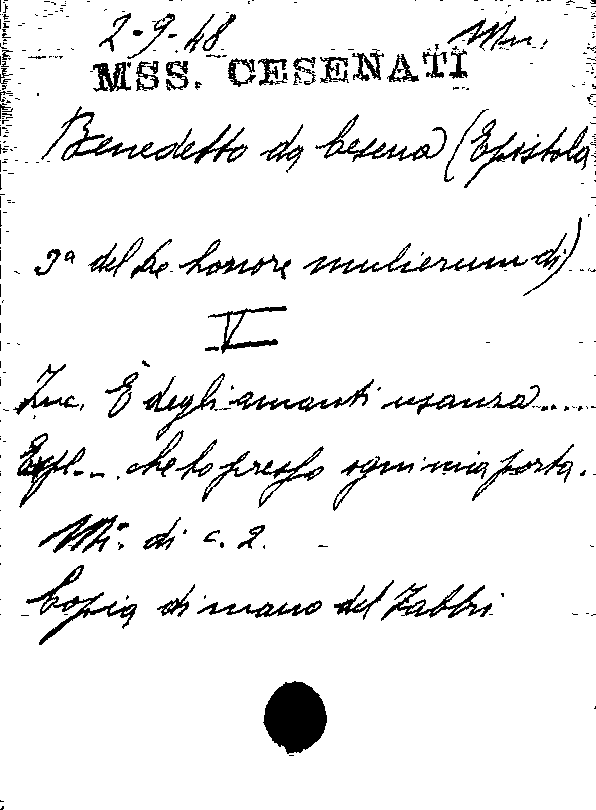 2-9-48 Mn.
MSS. CESENATI
Benedetto da Cesena (Epistola
3ª del De honore mulierum di)
V
Inc. È degli amanti usanza....
Expl... che ho presso ogni mia porta.
Mº. di c. 2.
Copia di mano del Zabbri